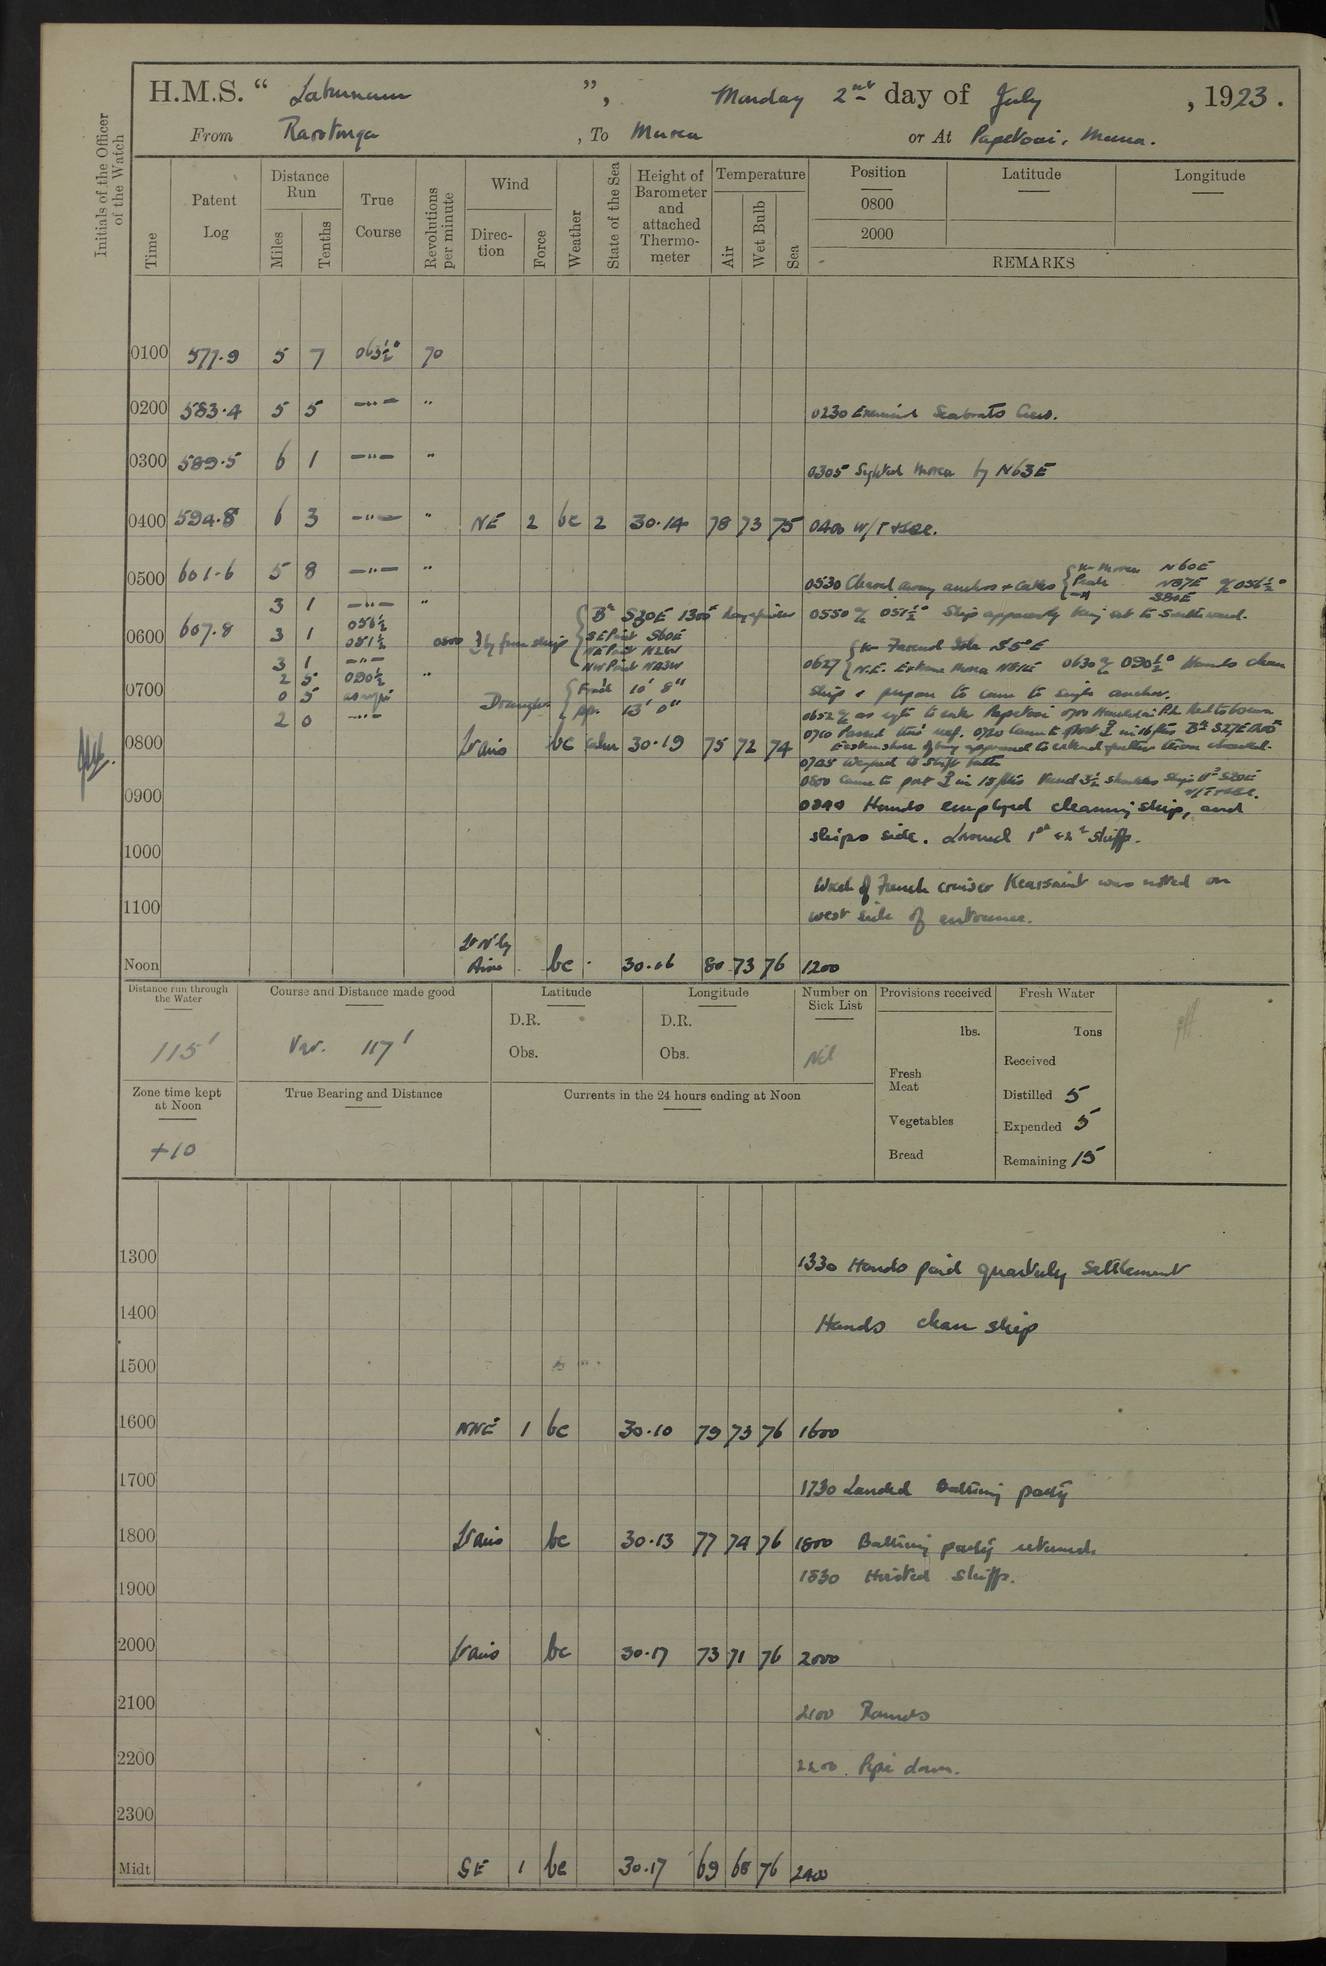 H.M.S. “ Laburnum ”, Monday 2nd day of July , 1923.
From Rarotonga , To Murea or At Papetoai, Murea.
Initials of the Officer of the Watch
Time
Patent Log
Distance Run
Miles
Tenths
True Course
Revolutions per minute
Wind
Direction
Force
Weather
State of the Sea
Height of Barometer and attached Thermometer
Temperature
Air
Wet Bulb
Sea
Position
0800
2000
Latitude
Longitude
REMARKS
0100 577.9 5 7 063½° 70
0200 583.4 5 5 —"— "
0230 Exercised Seaboats Crew.
0300 589.5 6 1 —"— "
0305 Sighted Murea by N63E
0400 594.8 6 3 —"— " NE 2 bc 2 30.14 78 73 75 0400 W/T
0500 601.6 5 8 —"— "
0530 Cleared away anchors + cables { Murea N60E Peak N87E S80E 056½°
3 1 —"— "
0550 051½° Ship apparently being set to Southward.
0600 607.8 3 1 056½ 051½
0800 by from ship { Bg S20E 1300 SE Point S60E NE Point N2W NW Point N23W
3 1 —"— "
0627 { S5°E N.E. Extreme Murea N81E 0630 090½° Hands clean
2 5 090½
0700 0 5 as req
ship & prepare to come to single anchor.
Draught { For'd 10' 8" Aft. 13' 0"
2 0 —"—
0652 as reqd to enter Papetoai 0700
0710 Passed thro' reef. 0720 Came to port in 16 fms Bg S27E
0800 Lt airs bc calm 30.19 75 72 74
Eastern shore of bay appeared to extend further than charted.
0725 Weighed to Shift berth
0800 Came to port in 15 fms Veered 3½ shackles Ships Hd S20E
W/T
0900
0840 Hands employed cleaning ship, and
ships side. Lowered 1st & 2nd skiffs.
1000
Wreck of French cruiser Kersaint was noted on
1100
west side of entrance.
Noon Lt N'ly Airs bc 30.06 80 73 76 1200
Distance run through the Water
115'
Course and Distance made good
Var. 117'
Latitude
D.R.
Obs.
Longitude
D.R.
Obs.
Number on Sick List
Nil
Provisions received
lbs.
Fresh Meat
Vegetables
Bread
Fresh Water
Tons
Received
Distilled 5
Expended 5
Remaining 15
Zone time kept at Noon
+10
True Bearing and Distance
Currents in the 24 hours ending at Noon
1300
1330 Hands paid quarterly settlement
1400
Hands clean ship
1500
1600 NNE 1 bc 30.10 79 73 76 1600
1700
1730 Landed bathing party
1800 Lt airs bc 30.13 77 74 76 1800 Bathing party returned.
1830 Hoisted skiffs.
1900
2000 Lt airs bc 30.17 73 71 76 2000
2100
2100 Rounds
2200
2200. Pipe down.
2300
Midt SE 1 bc 30.17 69 68 76 2400